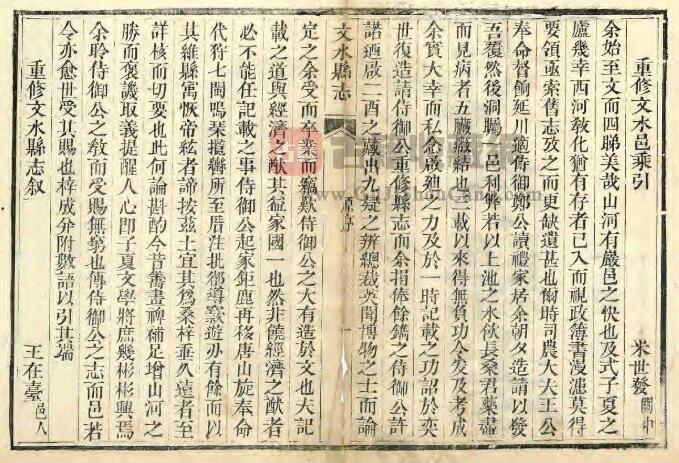 重修文水邑乘引
米世發 關中
余始至文而四睇美哉山河有嚴邑之快也及式子夏之
廬幾幸西河敎化猶有存者已入而視政簿書漫漶莫得
要領亟索舊志攷之而更缺遺甚也衡時司農大夫王公
奉命督餉延川適侍御鄭公讀禮家居余朝夕造請以發
吾覆然後洞矚一邑利弊若以上池之水飮長桑君藥盡
而見病者五臟癥結也一載以來得無負功令发及考成
余實大幸而私念啟廸之力及於一時記載之功詔於奕
世復造請侍御公重修縣志而余捐俸餘鐫之侍御公許
諾廼啟二酉之藏出九疑之辨總裁英聞博物之士而論
文水縣志
原序
一
定之余受而卒業而竊歎侍御公之大有造於文也夫記
載之道與經濟之猷其益家國一也然非饒經濟之猷者
必不能任記載之事侍御公起家鉅鹿再移唐山旋奉命
代狩七閩鳴琹攬轡所至厝注批郤導窾遊刃有餘而以
其維縣寓恢帝紘者諦按兹土宜其爲桑梓垂久遠者至
詳核而切要也此何論斟酌今昔善畫裨補足增山河之
勝而褒譏取義提醒人心卽子夏文學將庶幾彬彬興焉
余聆侍御公之敎而受賜無窮也傳侍御公之志而邑若
令亦愈世受其賜也梓成分附數語以引其端
重修文水縣志叙
王在臺 邑人